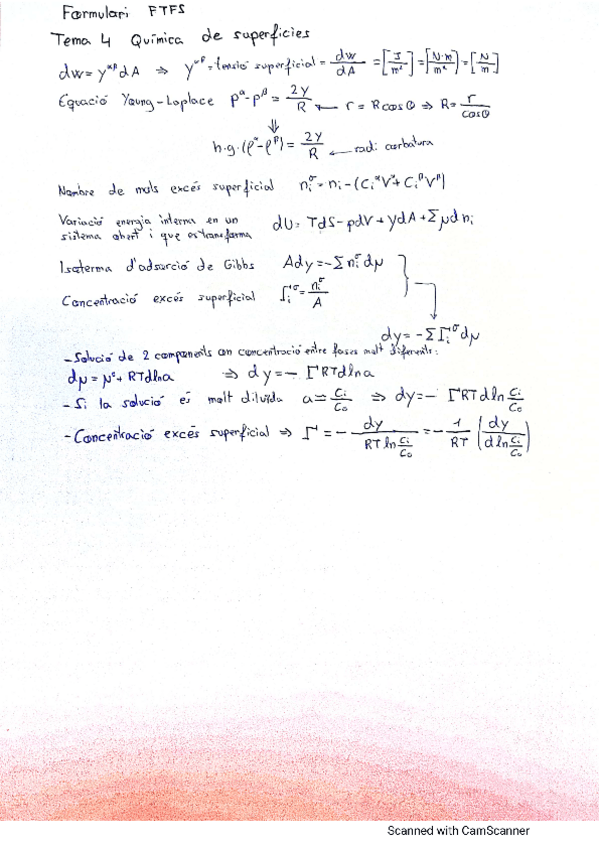 Formulari FTFS
Tema 4 Química de superfícies
dw = γ^αβ dA ⇒ γ^αβ = tensió superficial = dw/dA = [J/m²] = [N·m/m²] = [N/m]
Equació Young-Laplace p^α - p^β = 2γ/R ← r = R cosθ ⇒ R = r/cosθ
⇓
h·g·(ρ^α - ρ^β) = 2γ/R ← radi curbatura
Nombre de mols excés superficial n_i^σ = n_i - (C_i^α V^α + C_i^β V^β)
Variació energia interna en un
sistema obert i que es transforma dU = TdS - pdV + γdA + Σμdn_i
Isoterma d'adsorció de Gibbs Adγ = -Σn_i^σ dμ
Concentració excés superficial Γ_i^σ = n_i^σ/A
dγ = -ΣΓ_i^σ dμ
- Solució de 2 components on concentració entre fases molt diferents:
dμ = μ° + RTdlna ⇒ dγ = - ΓRTdlna
- Si la solució és molt diluïda a = C_i/C_o ⇒ dγ = - ΓRTdln C_i/C_o
- Concentració excés superficial ⇒ Γ = - dγ/(RT ln C_i/C_o) = - 1/RT (dγ/(d ln C_i/C_o))
Scanned with CamScanner